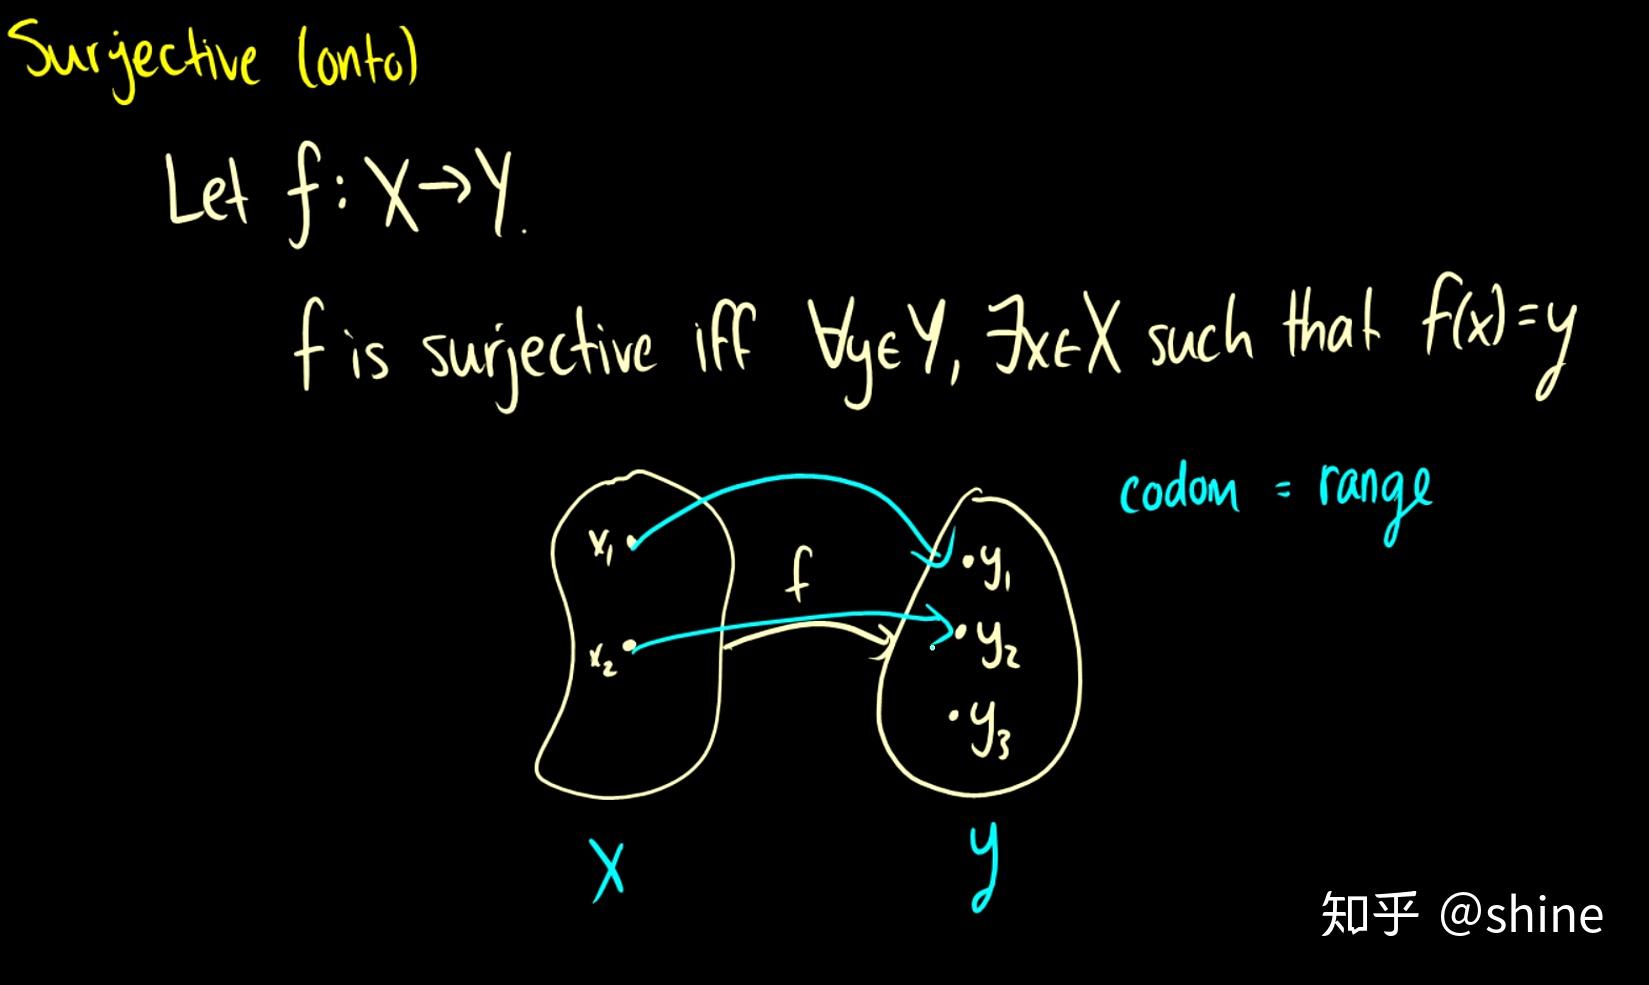 Surjective (onto)
Let f: X→Y.
f is surjective iff ∀y∈Y, ∃x∈X such that f(x)=y
codom = range
x₁
f
y₁
x₂
y₂
y₃
X
y
知乎 @shine